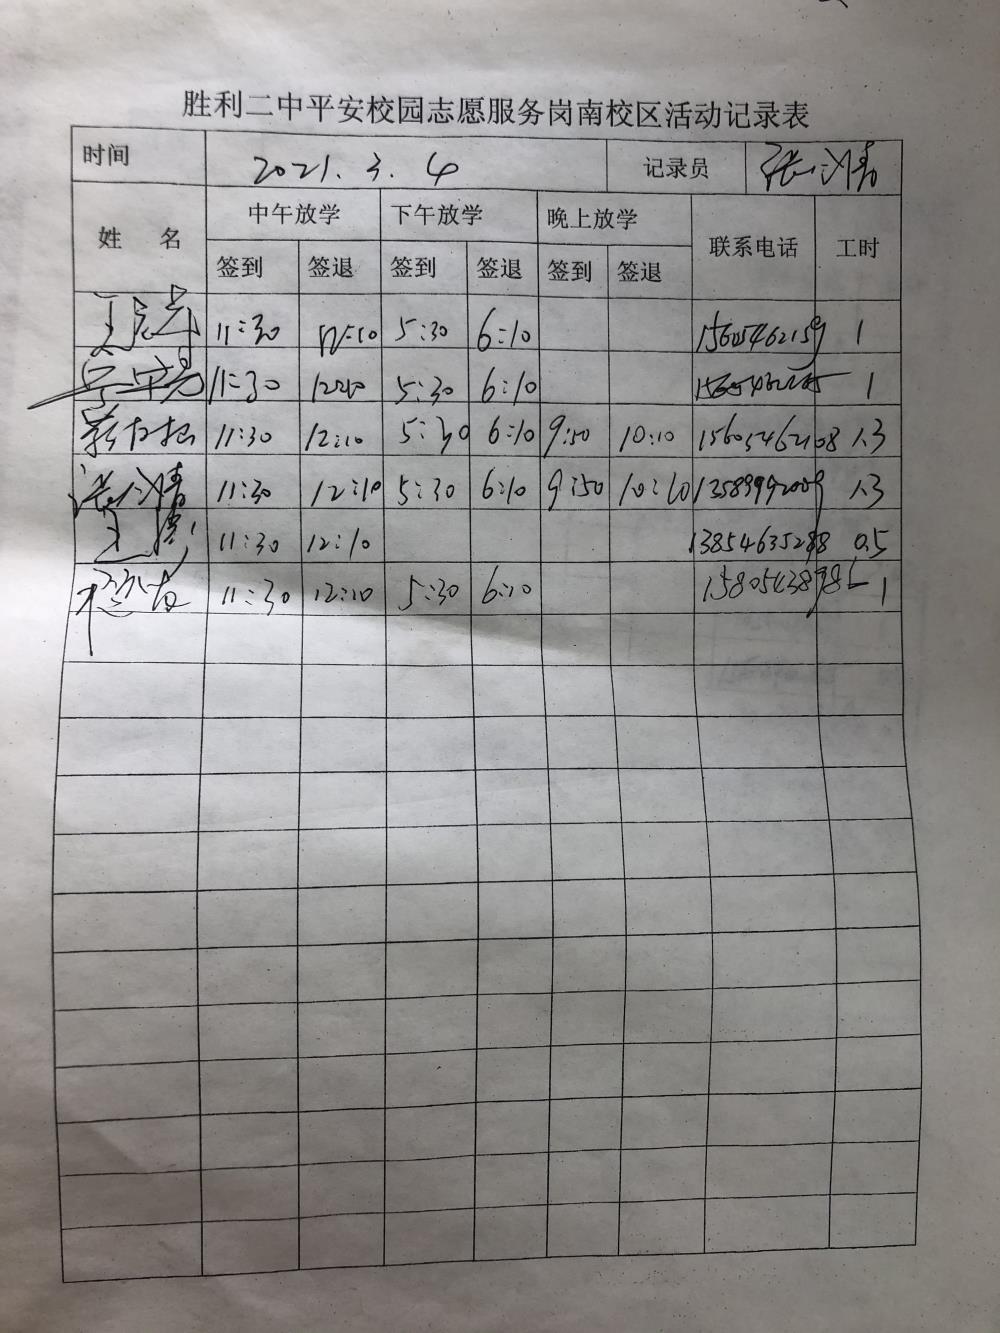 胜利二中平安校园志愿服务岗南校区活动记录表
时间 2021.3.4 记录员 张以清
姓 名 中午放学 下午放学 晚上放学 联系电话 工时
签到 签退 签到 签退 签到 签退
11:30 12:10 5:30 6:10 15605462159 1
11:30 12:10 5:30 6:10 1
11:30 12:10 5:30 6:10 9:50 10:10 15605462108 1.3
11:30 12:10 5:30 6:10 9:50 10:10 13589992009 1.3
11:30 12:10 13854635288 0.5
11:30 12:10 5:30 6:10 1